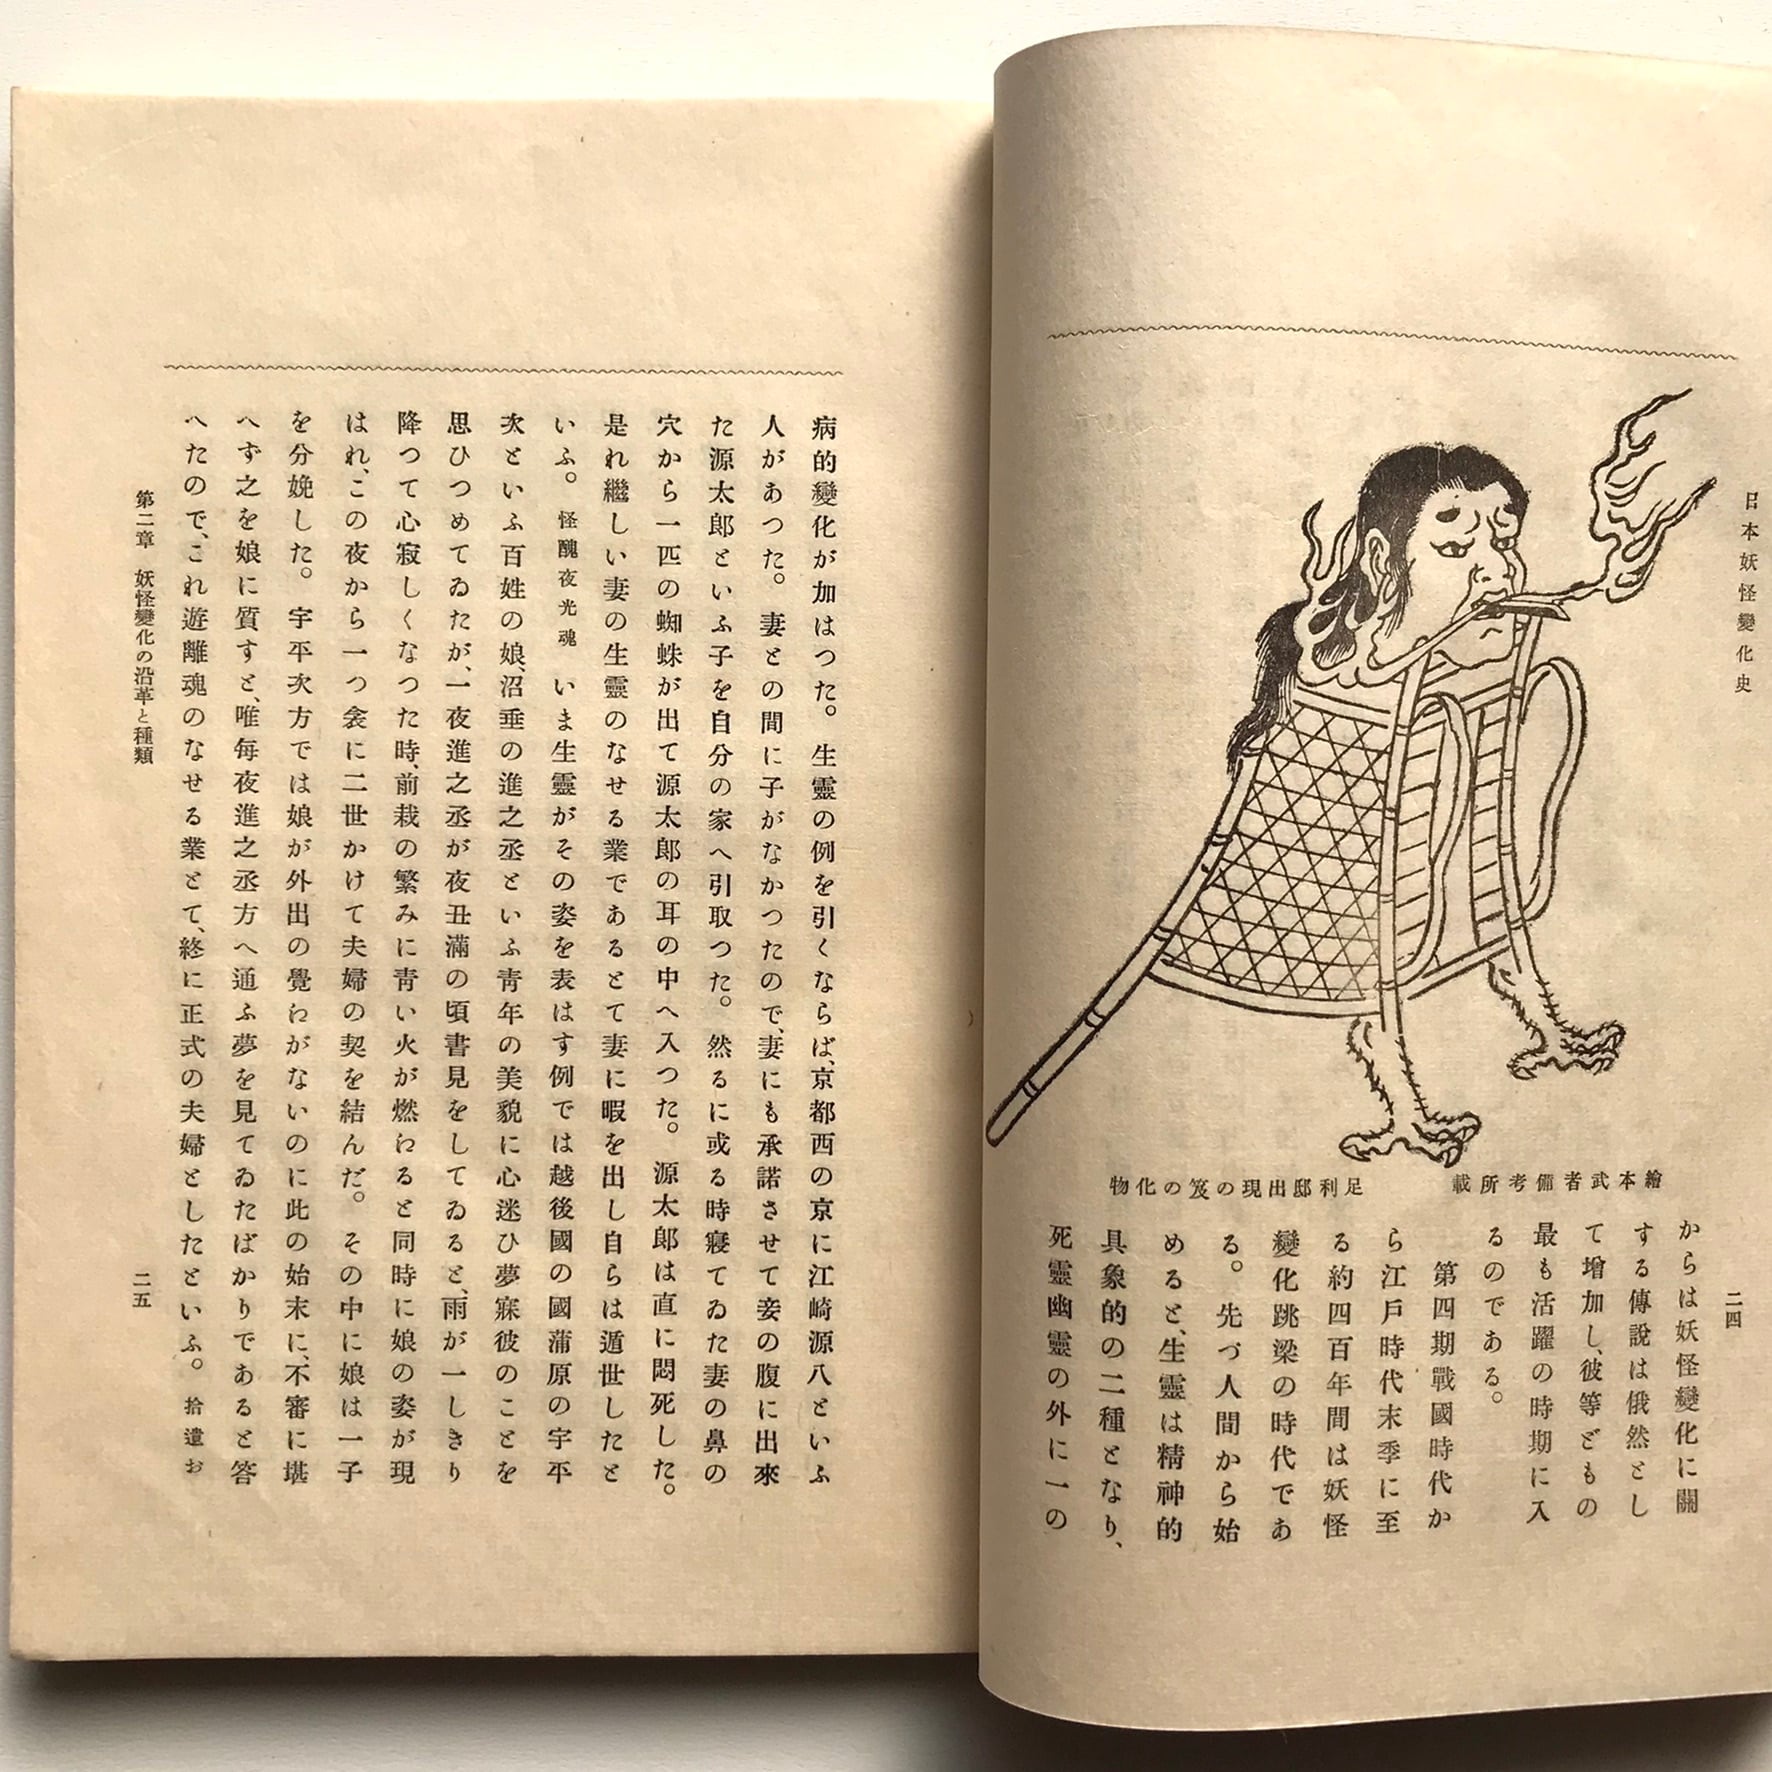 日本妖怪變化史
二四
繪本武者備考所載
足利邸出現の笈の化物
からは妖怪變化に關
する傳說は俄然とし
て增加し、彼等どもの
最も活躍の時期に入
るのである。
第四期戰國時代か
ら江戶時代末季に至
る約四百年間は妖怪
變化跳梁の時代であ
る。先づ人間から始
めると、生靈は精神的
具象的の二種となり、
死靈幽靈の外に一の
病的變化が加はつた。生靈の例を引くならば、京都西の京に江崎源八といふ
人があつた。妻との間に子がなかつたので、妻にも承諾させて妾の腹に出來
た源太郎といふ子を自分の家へ引取つた。然るに或る時寢てゐた妻の鼻の
穴から一匹の蜘蛛が出て源太郎の耳の中へ入つた。源太郎は直に悶死した。
是れ繼しい妻の生靈のなせる業であるとて妻に暇を出し自らは遁世したと
いふ。怪醜夜光魂 いま生靈がその姿を表はす例では越後國の國蒲原の宇平
次といふ百姓の娘、沼垂の進之丞といふ靑年の美貌に心迷ひ夢寐彼のことを
思ひつめてゐたが、一夜進之丞が夜丑滿の頃書見をしてゐると、雨が一しきり
降つて心寂しくなつた時、前栽の繁みに靑い火が燃わると同時に娘の姿が現
はれ、この夜から一つ衾に二世かけて夫婦の契を結んだ。その中に娘は一子
を分娩した。宇平次方では娘が外出の覺わがないのに此の始末に、不審に堪
へず之を娘に質すと、唯每夜進之丞方へ通ふ夢を見てゐたばかりであると答
へたので、これ遊離魂のなせる業とて、終に正式の夫婦としたといふ。拾遺お
第二章 妖怪變化の沿革と種類
二五